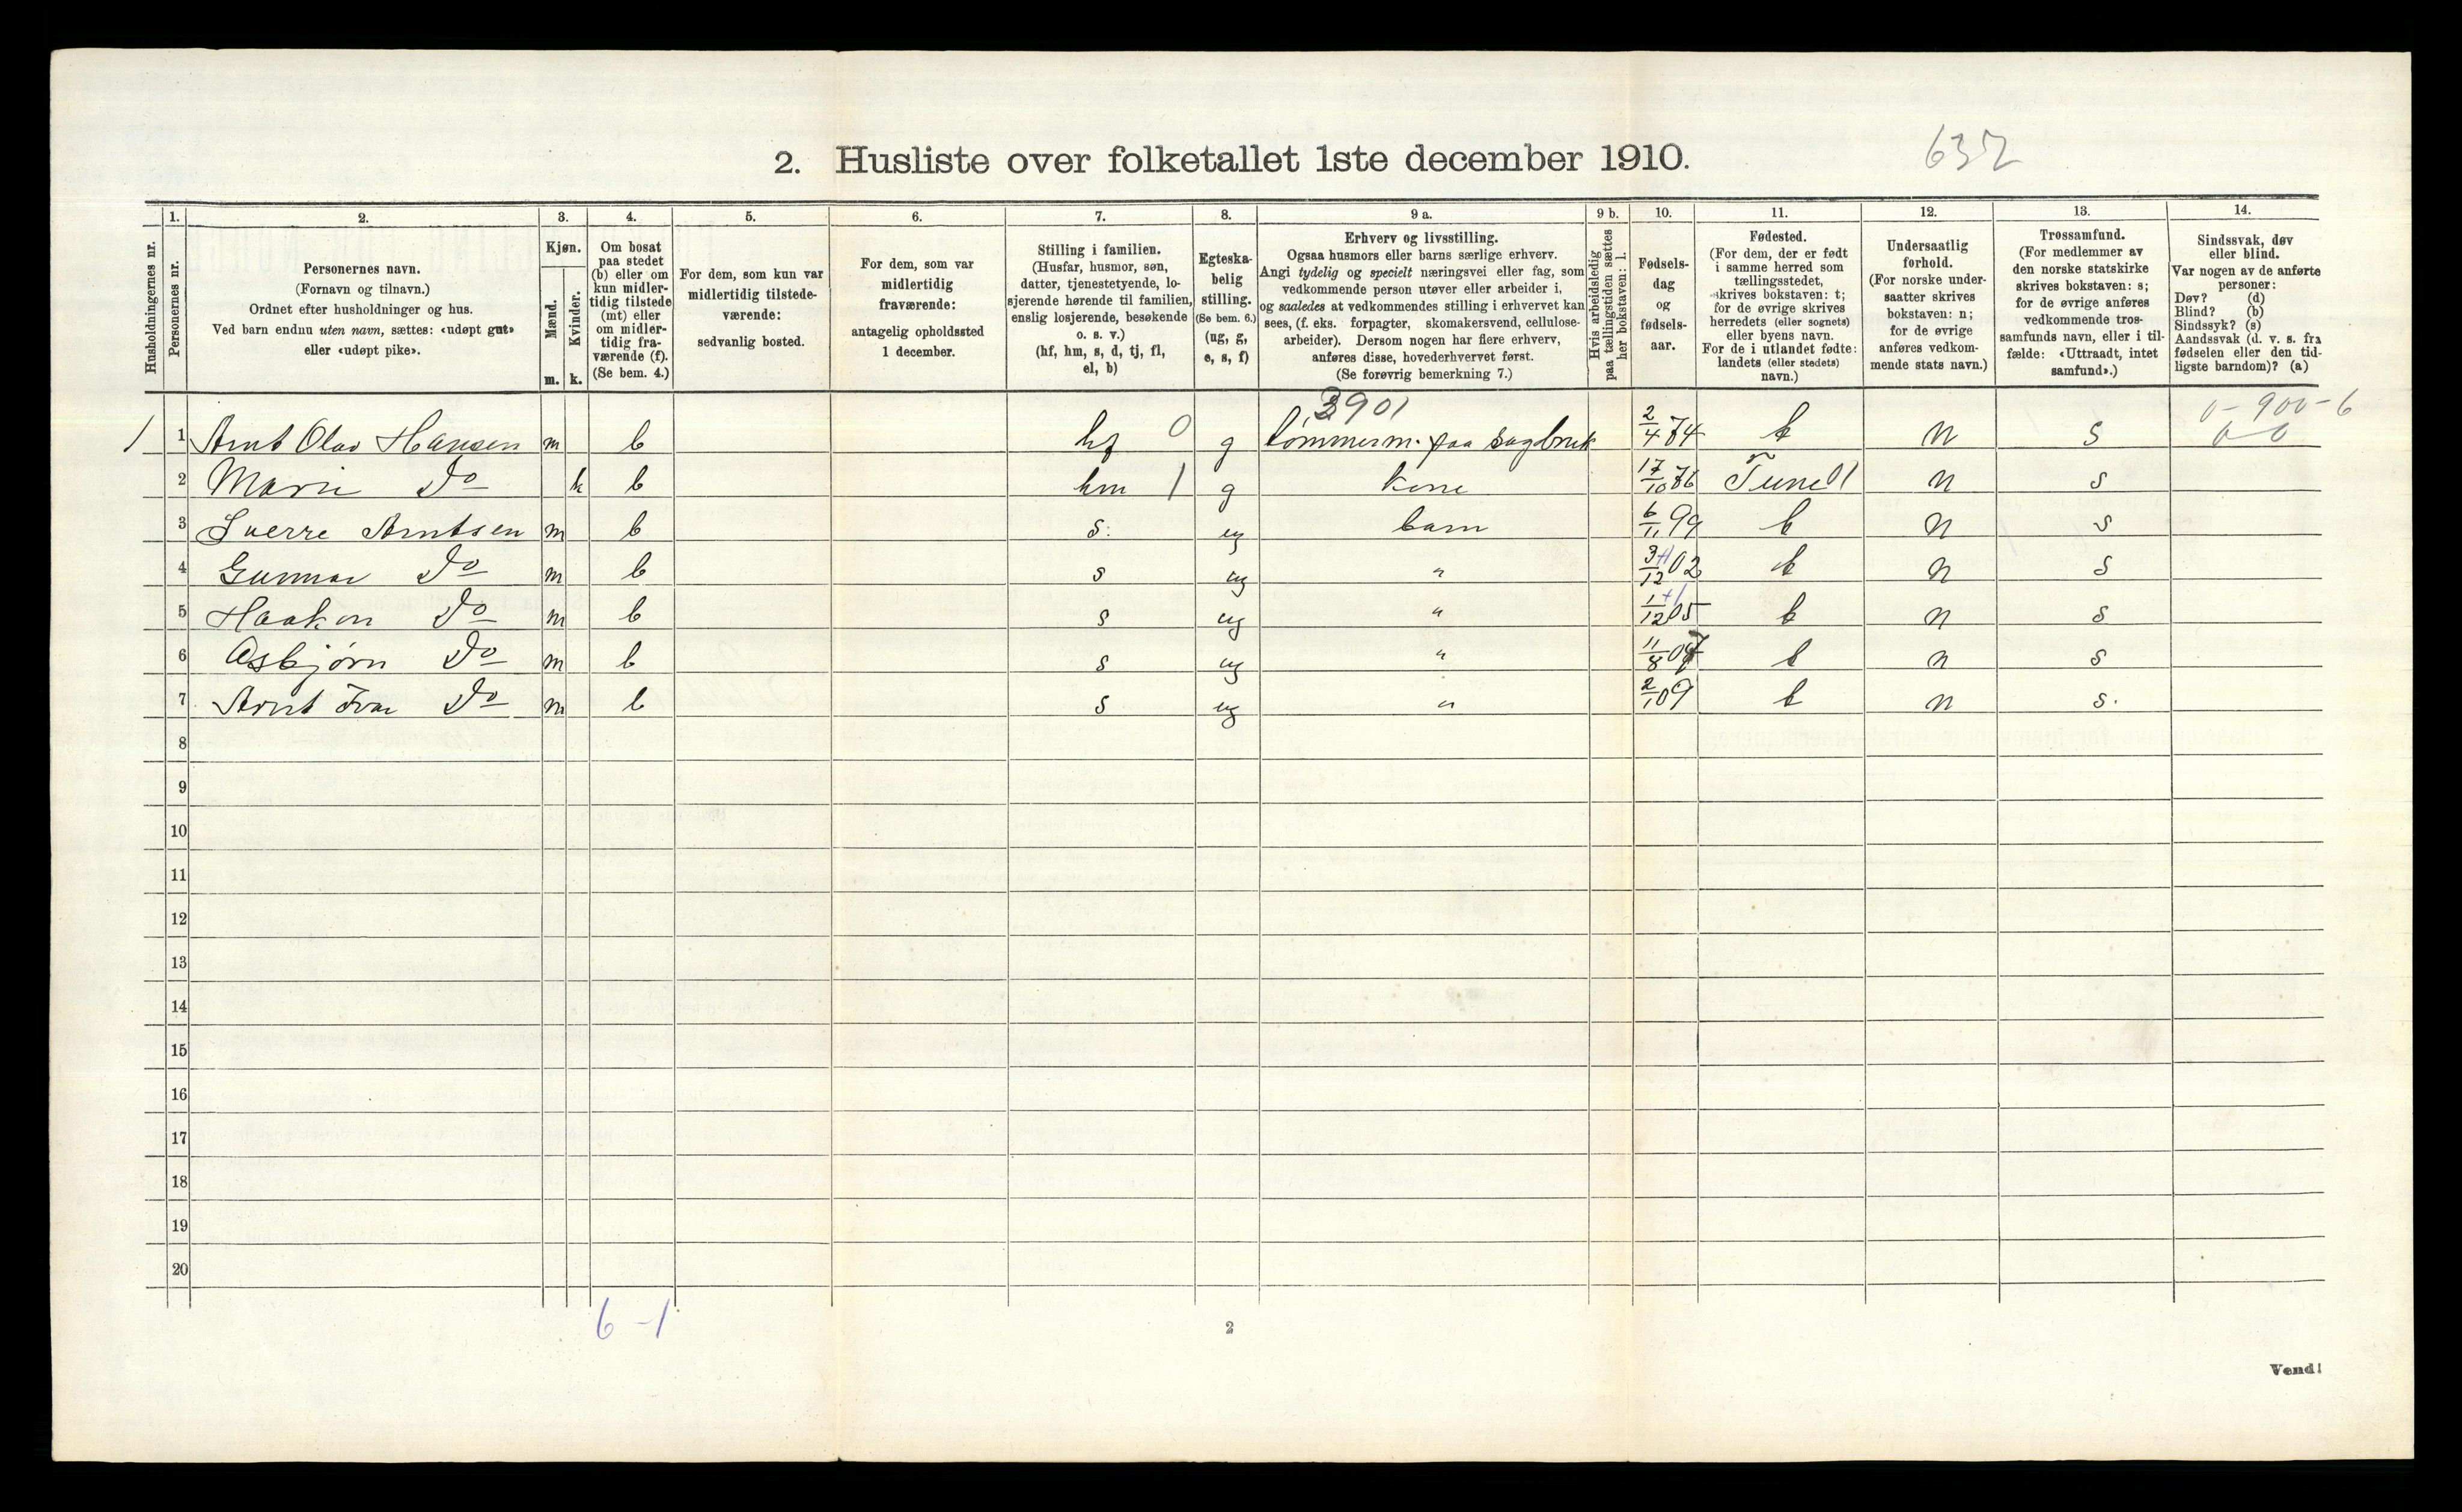 632
2. Husliste over folketallet 1ste december 1910.
Husholdningernes nr.
1.
Personernes nr.
2.
Personernes navn.
(Fornavn og tilnavn.)
Ordnet efter husholdninger og hus.
Ved barn endnu uten navn, sættes: «udøpt gut»
eller «udøpt pike».
3.
Kjøn.
Mænd.
Kvinder.
m. k.
4.
Om bosat
paa stedet
(b) eller om
kun midler-
tidig tilstede
(mt) eller
om midler-
tidig fra-
værende (f).
(Se bem. 4.)
5.
For dem, som kun var
midlertidig tilstede-
værende:
sedvanlig bosted.
6.
For dem, som var
midlertidig
fraværende:
antagelig opholdssted
1 december.
7.
Stilling i familien.
(Husfar, husmor, søn,
datter, tjenestetyende, lo-
sjerende hørende til familien,
enslig losjerende, besøkende
o. s. v.)
(hf, hm, s, d, tj, fl,
el, b)
8.
Egteska-
belig
stilling.
(Se bem. 6.)
(ug, g,
e, s, f)
9 a.
Erhverv og livsstilling.
Ogsaa husmors eller barns særlige erhverv.
Angi tydelig og specielt næringsvei eller fag, som
vedkommende person utøver eller arbeider i,
og saaledes at vedkommendes stilling i erhvervet kan
sees, (f. eks. forpagter, skomakersvend, cellulose-
arbeider). Dersom nogen har flere erhverv,
anføres disse, hovederhvervet først.
(Se forøvrig bemerkning 7.)
9 b.
Hvis arbeidsledig
paa tællingstiden sættes
her bokstaven: l.
10.
Fødsels-
dag
og
fødsels-
aar.
11.
Fødested.
(For dem, der er født
i samme herred som
tællingsstedet,
skrives bokstaven: t;
for de øvrige skrives
herredets (eller sognets)
eller byens navn.
For de i utlandet fødte:
landets (eller stedets)
navn.)
12.
Undersaatlig
forhold.
(For norske under-
saatter skrives
bokstaven: n;
for de øvrige
anføres vedkom-
mende stats navn.)
13.
Trossamfund.
(For medlemmer av
den norske statskirke
skrives bokstaven: s;
for de øvrige anføres
vedkommende tros-
samfunds navn, eller i til-
fælde: «Uttraadt, intet
samfund».)
14.
Sindssvak, døv
eller blind.
Var nogen av de anførte
personer:
Døv? (d)
Blind? (b)
Sindssyk? (s)
Aandssvak (d. v. s. fra
fødselen eller den tid-
ligste barndom)? (a)
3901 0-900-6
1 1 Arnt Olav Hansen m b hf 0 g tømmerm. paa sagbruk 2/4 74 t n s 0-0
2 Marie Do k b hm 1 g kone 17/10 76 Tune 01 n s
3 Sverre Arntsen m b s. ug barn 6/11 99 t n s
4 Gunnar Do m b s ug " 3/12 02 +1 t n s
5 Haakon Do m b s ug " 1/12 05 +1 t n s
6 Asbjørn Do m b s ug " 11/8 07 t n s
7 Arnt Ivar Do m b s ug " 2/1 09 t n s.
8
9
10
11
12
13
14
15
16
17
18
19
20
6-1
2
Vend!